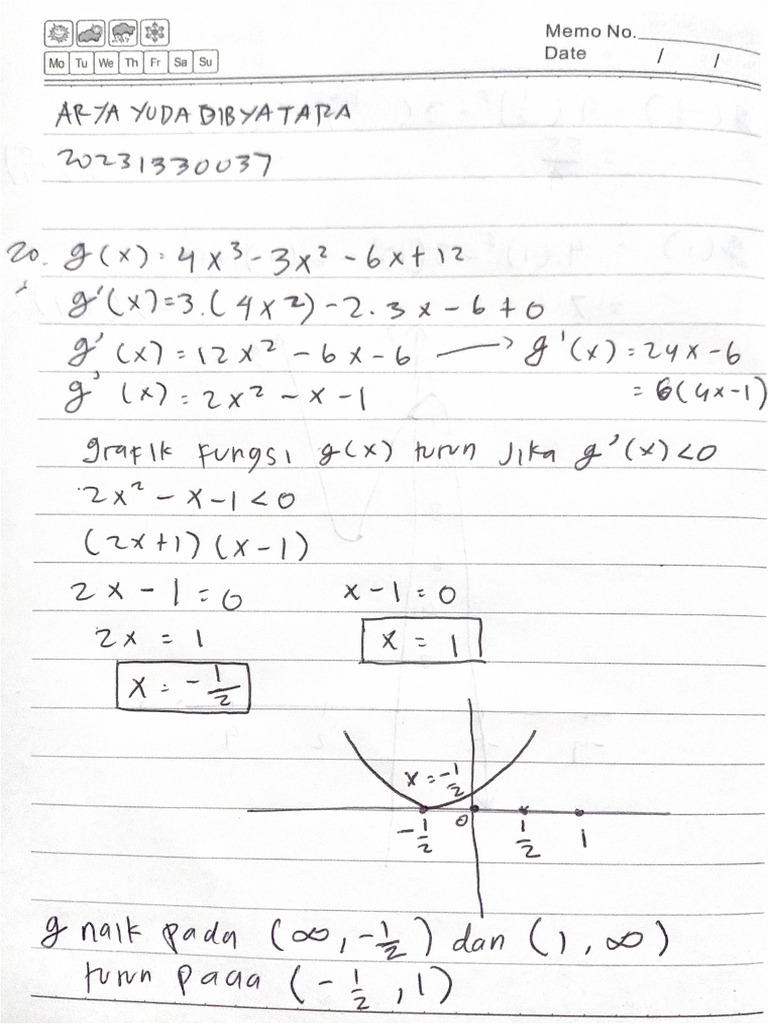 Memo No.
Mo Tu We Th Fr Sa Su
Date / /
ARYA YUDA DIBYATARA
20231330037
20. g(x) = 4x³ - 3x² - 6x + 12
g'(x) = 3.(4x²) - 2.3x - 6 + 0
g'(x) = 12x² - 6x - 6 → g'(x) = 24x - 6
g'(x) = 2x² - x - 1 = 6(4x-1)
grafik fungsi g(x) turun jika g'(x) < 0
2x² - x - 1 < 0
(2x+1) (x-1)
2x - 1 = 0 x - 1 = 0
2x = 1 x = 1
x = -1/2
x = -1/2
-1/2 0 1/2 1
g naik pada (∞, -1/2) dan (1, ∞)
turun pada (-1/2, 1)